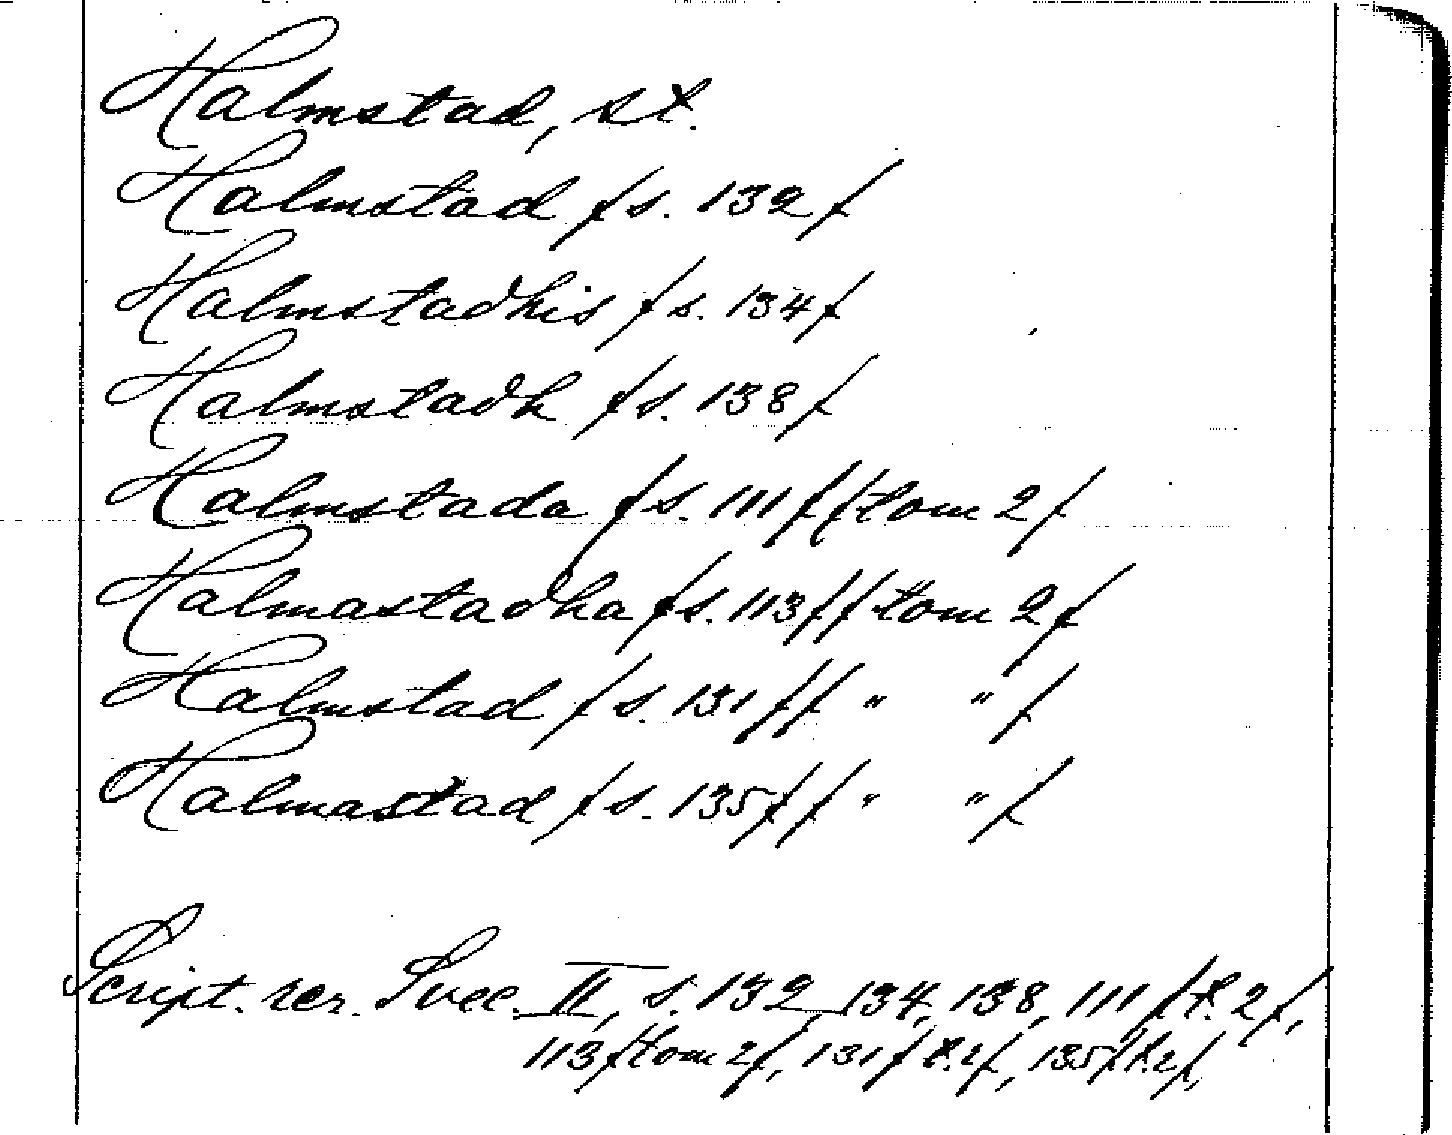 Halmstad, st.
Halmstad /s. 132/
Halmstadhis /s. 134/
Halmstadh /s. 138/
Halmstada /s. 111/ /tom 2/
Halmastadha /s. 113/ /tom 2/
Halmstad /s. 131/ / " " /
Halmastad /s. 135/ / " " /
Script. rer. Svec. II, s. 132, 134, 138, 111 /t. 2/,
113 /tom 2/, 131 /t. 2/, 135 /t. 2/,